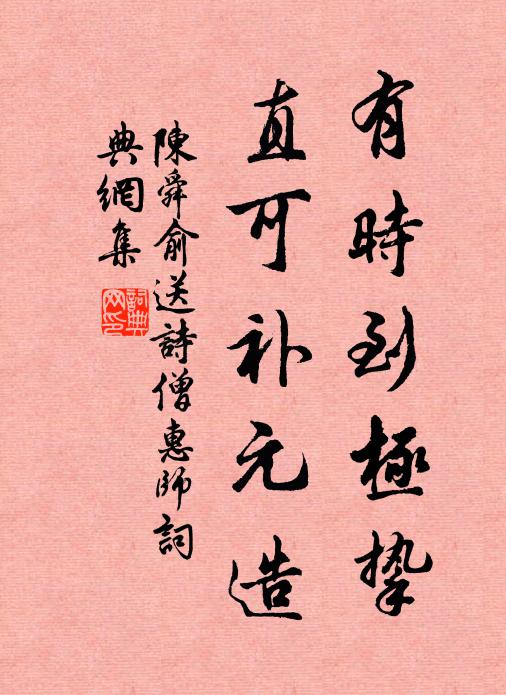 有時到極摯
直可补元造
陳舜俞送詩僧惠師詞
典網集
詞典网印